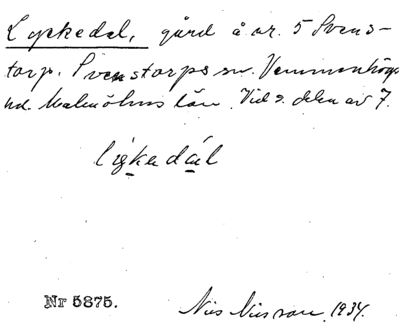 Lyckedal, gård å nr. 5 Svens-
torp. Svenstorps sn. Vemmenhögs
hd. Malmöhus län. Vid s. delen av 7.
ligkadál
Nr 5875.
Nils Nilsson 1934.